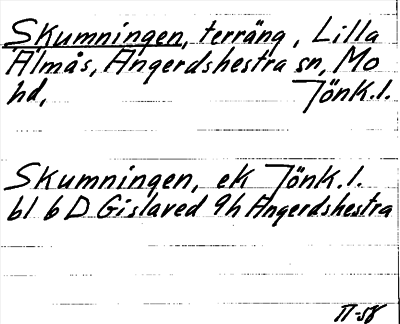 Skumningen, terräng, Lilla
Älmås, Angerdshestra sn, Mo
hd, Jönk.l.
Skumningen, ek Jönk.l.
bl 6 D Gislaved 9h Angerdshestra